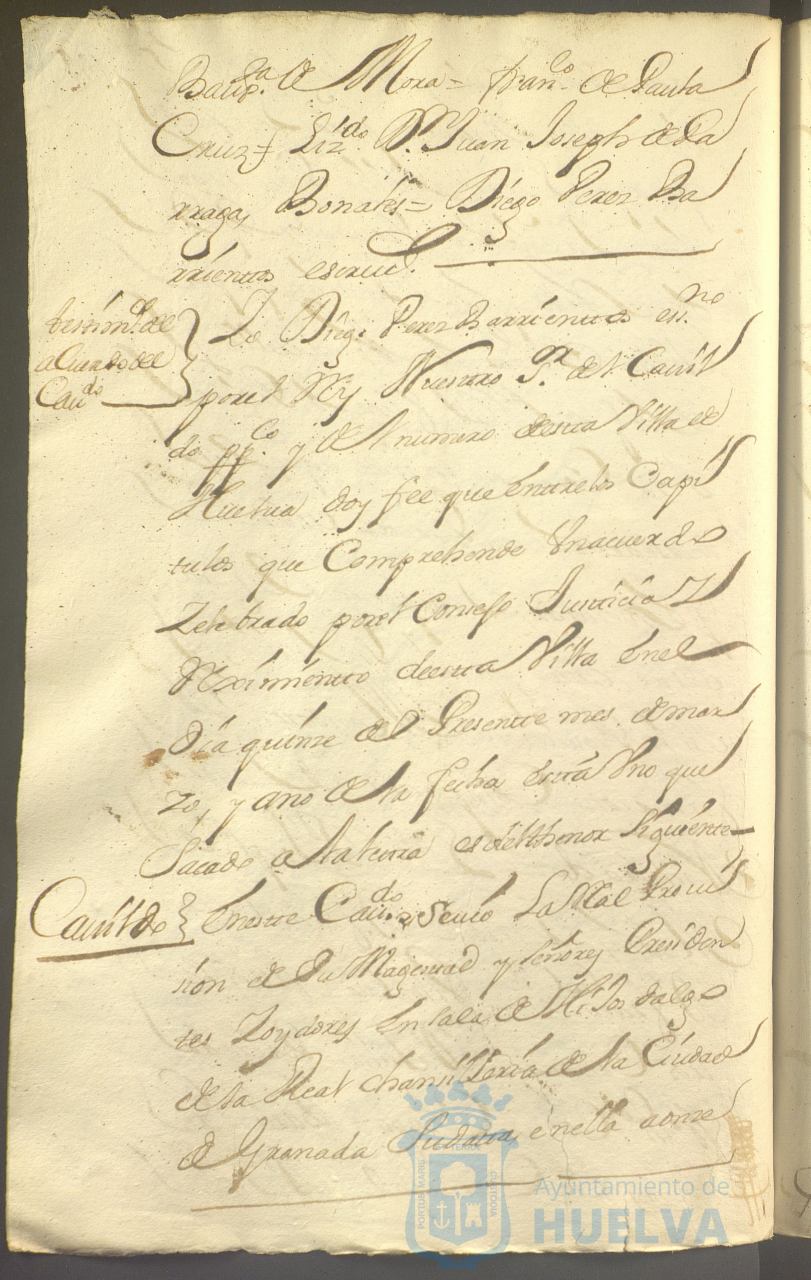 Baup.ta de Mora = fran.co de Paula
Cruz = Liz.do D.n Juan Joseph de La
rraga, Bonales = Diego Perez Ba
rrientos escriv.
testim.o del
acuerdo del
Cau.do
Yo Diego Perez Barrientos es.no
por el Rey Nuestro S.r del Cavil
do pp.co y del numero de esta Villa de
Huelva doy fee que entre los Capi
tulos que Comprehende Un acuerdo
Zelebrado por el Consejo Justicia Y
Reximiento de esta Villa en el
dia quinze del Presente mes de mar
zo, y año de la fecha està Uno que
Sacado a la letra es del thenor Siguiente
Cavildo
En este Cau.do se vio La Real Provi
sion de Su Magestad y señores Presiden
tes Y oydores en sala de Hijos dalgo
de la Real chansilleria de la Ciudad
de Granada Su data, en ella a onze
PORTUS MARIS
ET TERRÆ
CUSTODIA
Ayuntamiento de
HUELVA